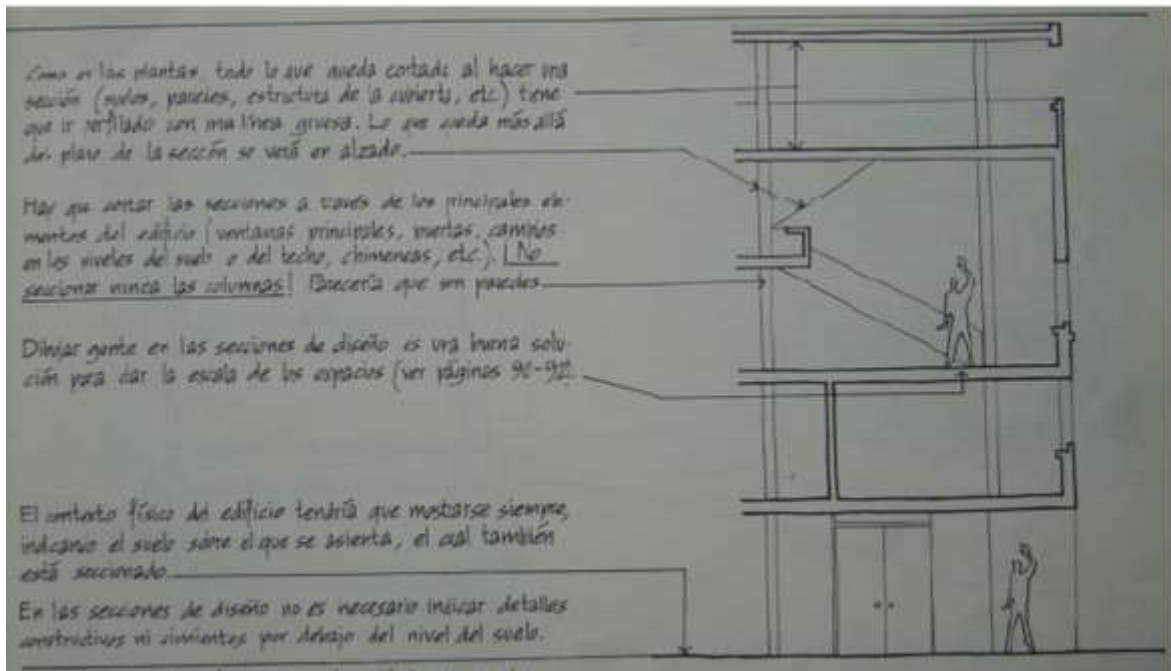 Como en las plantas, todo lo que queda cortado al hacer una
sección (suelos, paredes, estructura de la cubierta, etc.) tiene
que ir perfilado con una línea gruesa. Lo que queda más allá
del plano de la sección se verá en alzado.
Hay que cortar las secciones a través de los principales ele-
mentos del edificio (ventanas principales, puertas, cambios
en los niveles del suelo o del techo, chimeneas, etc.). ¡No
seccionar nunca las columnas! Parecería que son paredes.
Dibujar gente en las secciones de diseño es una buena solu-
ción para dar la escala de los espacios (ver páginas 90-92).
El contexto físico del edificio tendría que mostrarse siempre,
indicando el suelo sobre el que se asienta, el cual también
está seccionado.
En las secciones de diseño no es necesario indicar detalles
constructivos ni cimientos por debajo del nivel del suelo.